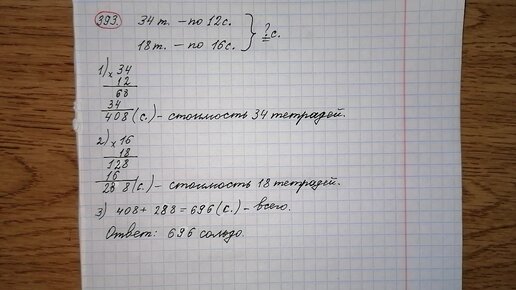 393. 34 т. – по 12 с.
18 т. – по 16 с. } ? с.
1) х 34
12
68
34
408 (с.) – стоимость 34 тетрадей.
2) х 16
18
128
16
288 (с.) – стоимость 18 тетрадей.
3) 408 + 288 = 696 (с.) – всего.
Ответ: 696 сольдо.